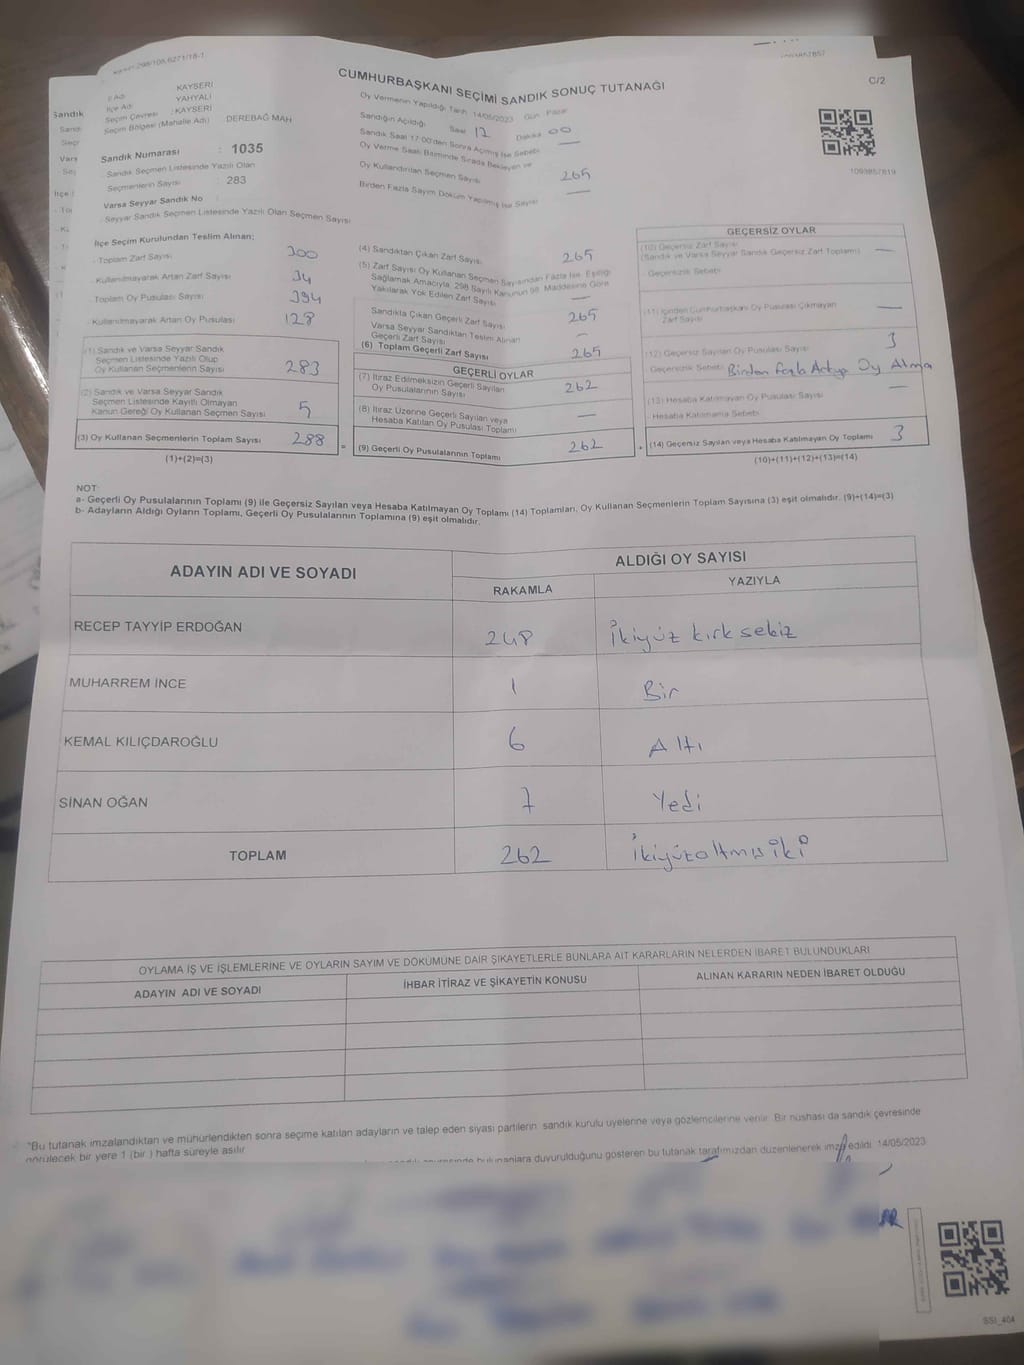 CUMHURBAŞKANI SEÇİMİ SANDIK SONUÇ TUTANAĞI
C/2
İl Adı KAYSERİ
İlçe Adı YAHYALI
Seçim Çevresi : KAYSERİ
Seçim Bölgesi (Mahalle Adı) : DEREBAĞ MAH
Sandık Numarası : 1035
Sandık Seçmen Listesinde Yazılı Olan
Seçmenlerin Sayısı : 283
Varsa Seyyar Sandık No
Seyyar Sandık Seçmen Listesinde Yazılı Olan Seçmen Sayısı
Oy Vermenin Yapıldığı Tarih 14/05/2023 Gün Pazar
Sandığın Açıldığı Saat 12 Dakika 00
Sandık Saat 17:00'den Sonra Açılmış İse Sebebi —
Oy Verme Saati Bitiminde Sırada Bekleyen ve
Oy Kullandırılan Seçmen Sayısı 265
Birden Fazla Sayım Döküm Yapılmış İse Sayısı —
1093857819
İlçe Seçim Kurulundan Teslim Alınan;
- Toplam Zarf Sayısı 300
- Kullanılmayarak Artan Zarf Sayısı 34
- Toplam Oy Pusulası Sayısı 394
- Kullanılmayarak Artan Oy Pusulası 128
(1) Sandık ve Varsa Seyyar Sandık
Seçmen Listesinde Yazılı Olup
Oy Kullanan Seçmenlerin Sayısı 283
(2) Sandık ve Varsa Seyyar Sandık
Seçmen Listesinde Kayıtlı Olmayan
Kanun Gereği Oy Kullanan Seçmen Sayısı 5
(3) Oy Kullanan Seçmenlerin Toplam Sayısı 288
(1)+(2)=(3)
(4) Sandıktan Çıkan Zarf Sayısı 265
(5) Zarf Sayısı Oy Kullanan Seçmen Sayısından Fazla İse, Eşitliği
Sağlamak Amacıyla, 298 Sayılı Kanunun 98. Maddesine Göre
Yakılarak Yok Edilen Zarf Sayısı —
Sandıkta Çıkan Geçerli Zarf Sayısı 265
Varsa Seyyar Sandıktan Teslim Alınan
Geçerli Zarf Sayısı —
(6) Toplam Geçerli Zarf Sayısı 265
GEÇERLİ OYLAR
(7) İtiraz Edilmeksizin Geçerli Sayılan
Oy Pusulalarının Sayısı 262
(8) İtiraz Üzerine Geçerli Sayılan veya
Hesaba Katılan Oy Pusulası Toplamı —
(9) Geçerli Oy Pusulalarının Toplamı 262
GEÇERSİZ OYLAR
(10) Geçersiz Zarf Sayısı
(Sandık ve Varsa Seyyar Sandık Geçersiz Zarf Toplamı) —
Geçersizlik Sebebi
(11) İçinden Cumhurbaşkanı Oy Pusulası Çıkmayan
Zarf Sayısı —
(12) Geçersiz Sayılan Oy Pusulası Sayısı 3
Geçersizlik Sebebi Birden Fazla Adaya Oy Alma
(13) Hesaba Katılmayan Oy Pusulası Sayısı —
Hesaba Katılmama Sebebi
(14) Geçersiz Sayılan veya Hesaba Katılmayan Oy Toplamı 3
(10)+(11)+(12)+(13)=(14)
NOT:
a- Geçerli Oy Pusulalarının Toplamı (9) ile Geçersiz Sayılan veya Hesaba Katılmayan Oy Toplamı (14) Toplamları, Oy Kullanan Seçmenlerin Toplam Sayısına (3) eşit olmalıdır. (9)+(14)=(3)
b- Adayların Aldığı Oyların Toplamı, Geçerli Oy Pusulalarının Toplamına (9) eşit olmalıdır.
ADAYIN ADI VE SOYADI
ALDIĞI OY SAYISI
RAKAMLA YAZIYLA
RECEP TAYYİP ERDOĞAN 248 İkiyüz kırk sekiz
MUHARREM İNCE 1 Bir
KEMAL KILIÇDAROĞLU 6 Altı
SİNAN OĞAN 7 Yedi
TOPLAM 262 İkiyüzaltmış iki
OYLAMA İŞ VE İŞLEMLERİNE VE OYLARIN SAYIM VE DÖKÜMÜNE DAİR ŞİKAYETLERLE BUNLARA AİT KARARLARIN NELERDEN İBARET BULUNDUKLARI
ADAYIN ADI VE SOYADI İHBAR İTİRAZ VE ŞİKAYETİN KONUSU ALINAN KARARIN NEDEN İBARET OLDUĞU
"Bu tutanak imzalandıktan ve mühürlendikten sonra seçime katılan adayların ve talep eden siyasi partilerin sandık kurulu üyelerine veya gözlemcilerine verilir. Bir nüshası da sandık çevresinde
görülecek bir yere 1 (bir ) hafta süreyle asılır.
bulunanlara duyurulduğunu gösteren bu tutanak tarafımızdan düzenlenerek imza edildi. 14/05/2023
SSI_404